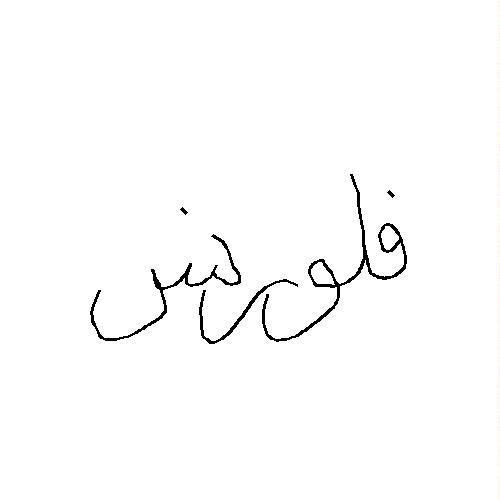 فلورنس